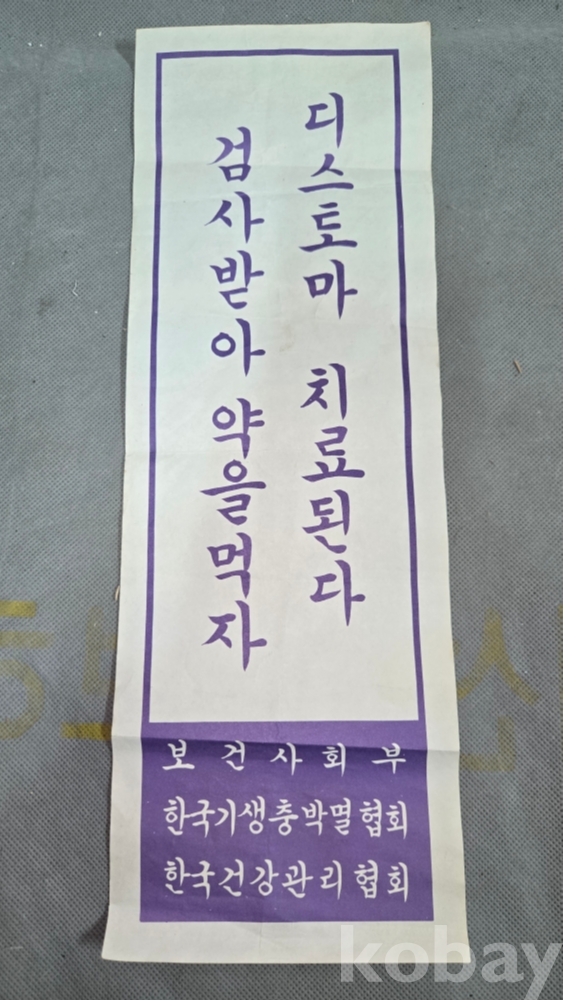 디스토마 치료된다
검사받아 약을먹자
보건사회부
한국기생충박멸협회
한국건강관리협회
kobay